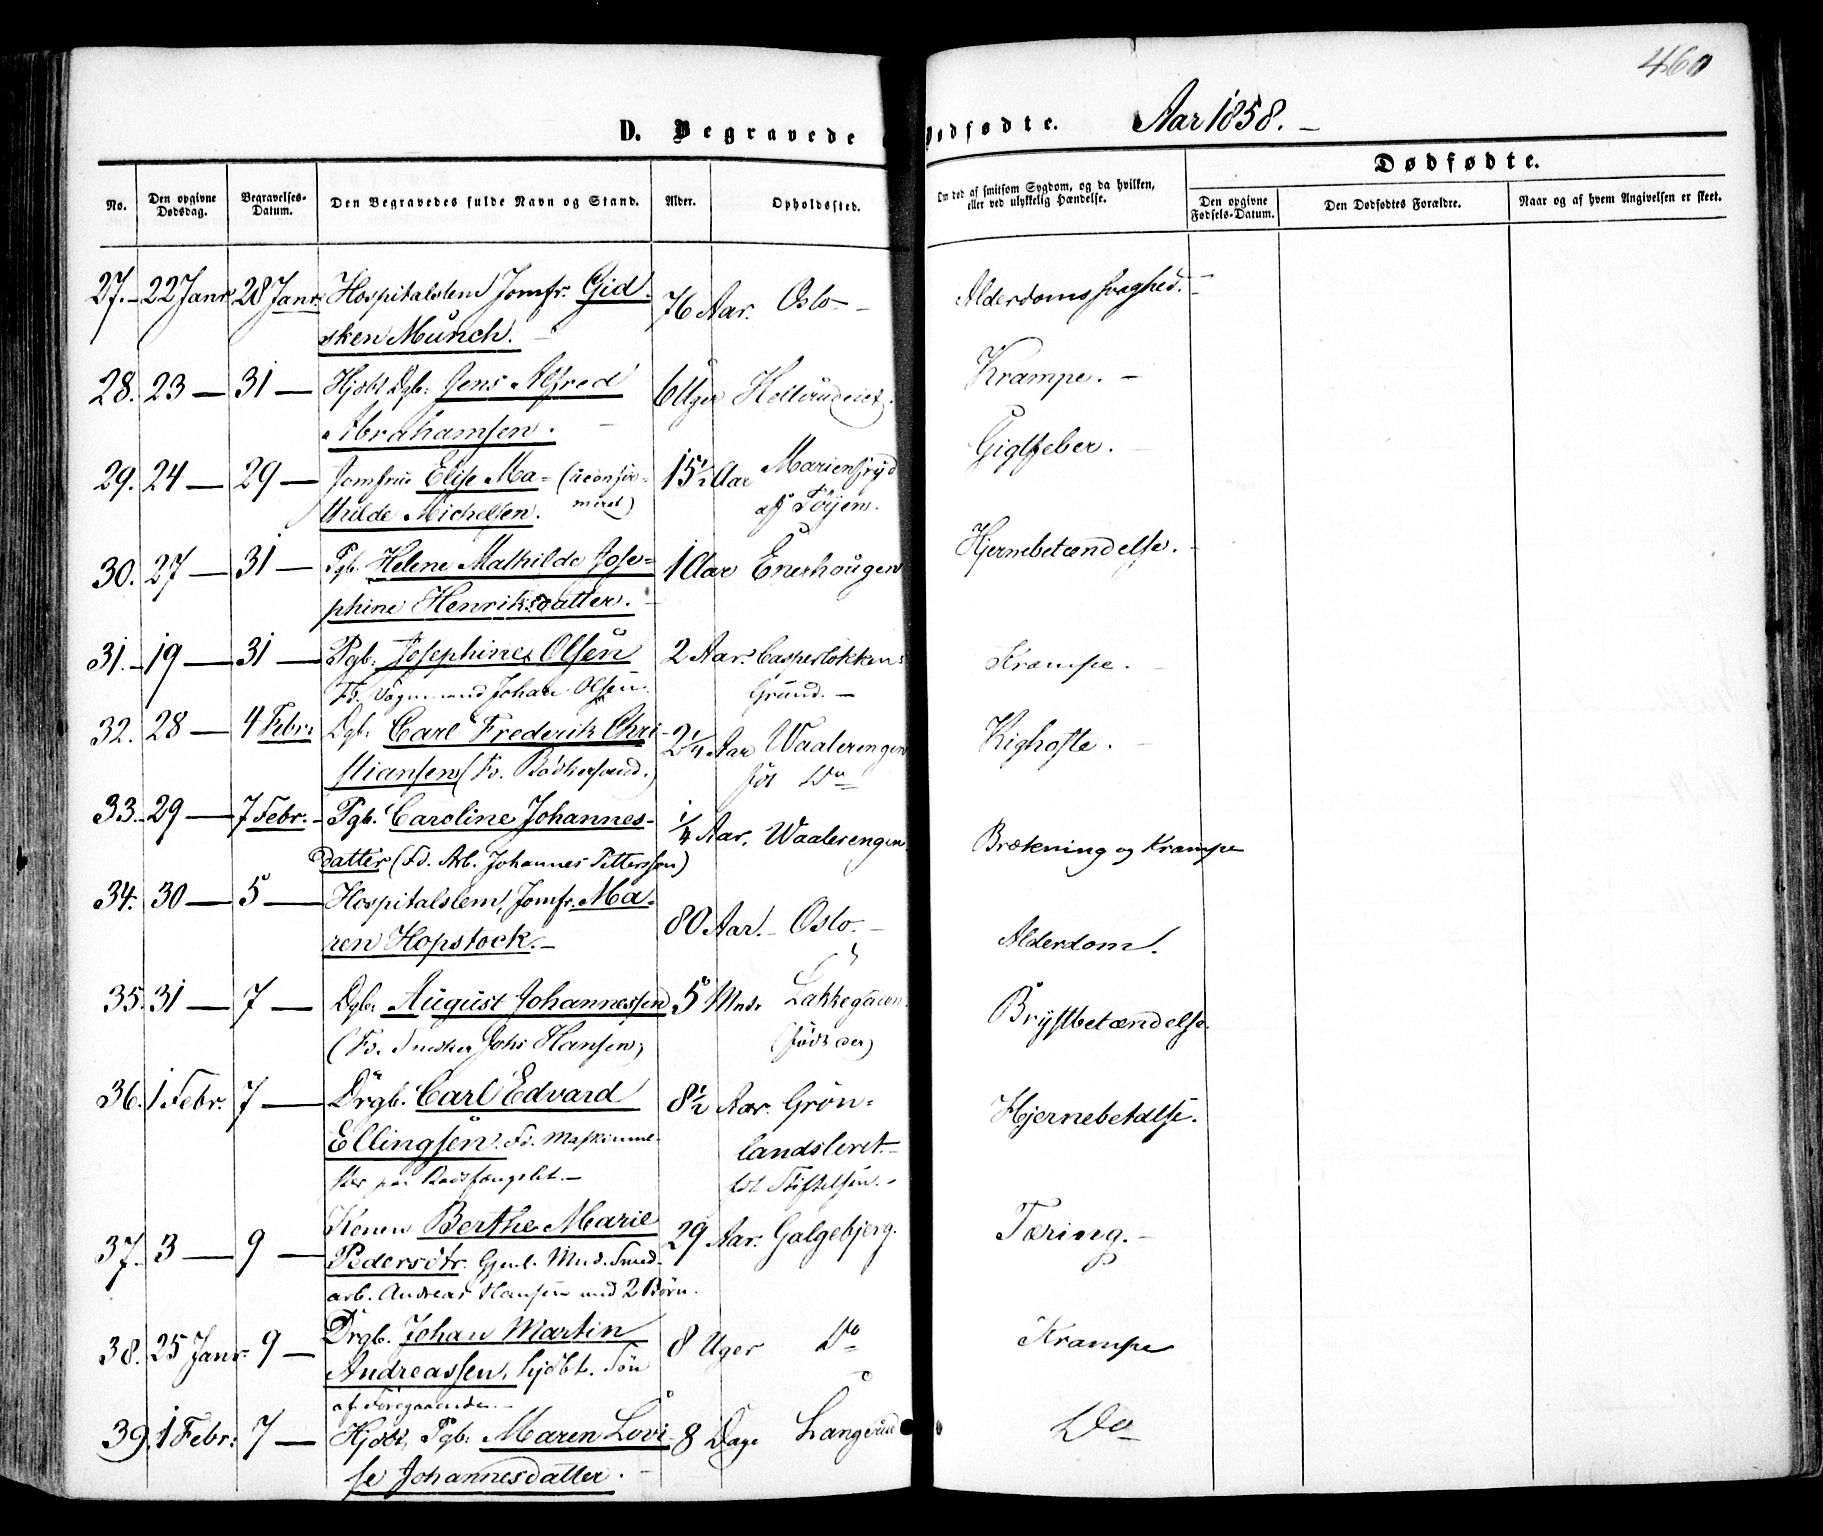 460
D. Begravede Dødfødte. Aar 1858. –
Dødfødte.
No.
Den opgivne Dødsdag.
Begravelses-Datum.
Den Begravedes fulde Navn og Stand.
Alder.
Opholdssted.
Om død af smitsom Sygdom, og da hvilken, eller ved ulykkelig Hændelse.
Den opgivne Fødsels-Datum.
Den Dødfødtes Forældre.
Naar og af hvem Angivelsen er skeet.
27. – 22 Janr. 28 Janr. Hospitalslem Jomfr. Gid- 76 Aar. Oslo – Alderdomssvaghed. –
sken Munch. –
28. 23 — 31 — Hjdbt Dgb. Jens Alfred 6 Uger Hellerudeiet. Krampe. –
Abrahamsen. –
29. 24 — 29 — Jomfru Elise Ma- (uconfir- 15½ Aar Marienfryd Gigtfeber. –
thilde Michelsen. meret) af Tøyen.
30. 27 — 31 — Pgb. Helene Mathilde Jose- 1 Aar Enerhougen Hjernebetændelse. –
phine Henriksdatter. –
31. – 19 — 31 — Pgb. Josephine Olsen 2 Aar. Casperløkkens Krampe. –
Fd. Vognmand Johan Olsen. Grund. –
32. 28 — 4 Febr. Dgb. Carl Frederik Chri- 2¼ Aar Waalerengen Kighoste. –
stiansen (Fd. Bødkersvend.) føt Do
33. – 29 — 7 Febr. – Pgb. Caroline Johannes- ¼ Aar. Waalerengen Brækning og Krampe
datter (Fd. Arb. Johannes Pettersson)
34. 30 — 5 — Hospitalslem, Jomfr. Ma- 80 Aar. – Oslo. – Alderdom.
ren Hopstock. –
35. 31 — 7 — Dgb. August Johannessen 5 Mndr Lakkegaden Brystbetændelse.
(Fd. Snedker Johs Hansen) (født der)
36. 1 Febr. 7 — Drgb. Carl Edvard 8½ Aar. Grøn- Hjernebetdlse.
Ellingsen. Fd. Maskinme- landsleret –
ster paa Bodsfængslet. – tdt Stiftelsen. –
37. 3 — 9 — Konen Berthe Marie 29 Aar. Galgebjerg. Tæring. –
Pedersdtr. Gjenl. Md. Smed-
arb. Andreas Hansen med 2 Børn.
38. 25 Janr. 9 — Drgb. Johan Martin 8 Uger Do Krampe
Andreassen, hjdbt. Søn
af Foregaaende. –
39. 1 Febr. 7 — Hjdbt, Pgb. Maren Lovi- 8 Dage Langerud Do
se Johannesdatter. –